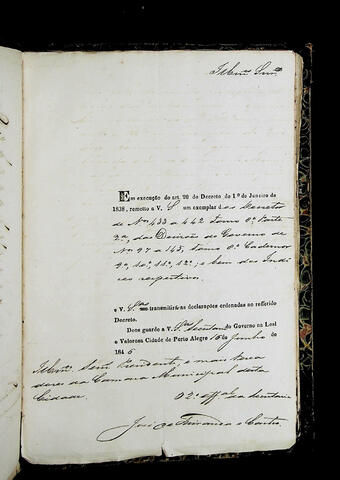 Illmos Snres
Em execução do art. 20 do Decreto do 1º de Janeiro de
1838, remetto a V. Sas um exemplar dos Decretos
de Nos 433 a 442 tomo 8º Parte
2a, das Decisões do Governo de
Nos 97 a 145, tomo 8º Cadernos
9º, 10º, 11º, 12º, e bem dos Indi
ces respectivos.
e V. Sas me transmittirão as declarações ordenadas no refferido
Decreto.
Deos guarde a V. Sas Secretaria do Governo na Leal
e Valorosa Cidade de Porto Alegre 15 de Junho de
1846
Illmos Senres Presidente, e mais Verea
dores da Camara Municipal desta
Cidade.
O 2º official da Secretaria
José de Miranda e Castro